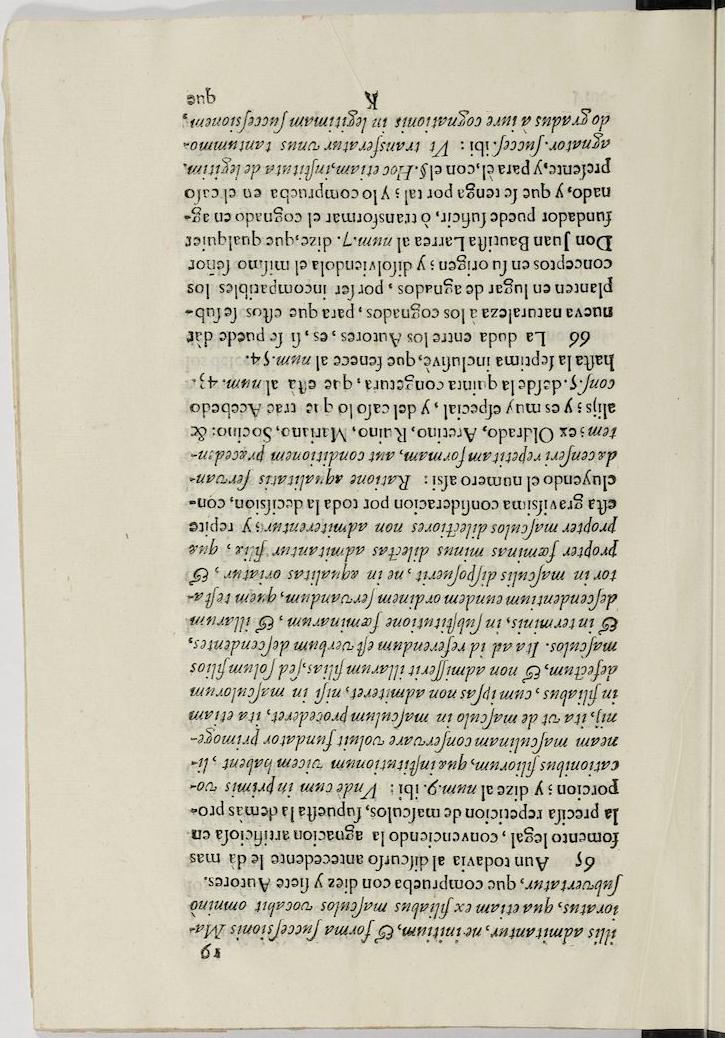 19
illis admitantur, ne initium, & forma succeſsionis Ma-
ioratus, qua etiam ex filiabus maſculos vocabit omninò
ſubvertatur, que comprueba con diez y ſiete Autores.
65 Aun todavia al diſcurſo antecedente le dà mas
fomento legal, convenciendo la agnacion artificioſa en
la preciſa repeticion de maſculos, ſupueſta la demàs pro-
porcion; y dize al num.9. ibi: Vnde cum in primis vo-
cationibus filiorum, quæ inſtitutionum vicem habent, li-
neam maſculinam conſervare voluit fundator primoge-
nij, ita vt de maſculo in maſculum procederet, ita etiam
in filiabus, cum ipſas non admiteret, niſi in maſculorum
defectum, & non admiſſerit illarum filias, ſed ſolum filios
maſculos. Ita ad id referendum eſt verbum deſcendentes,
& in terminis, in ſubſtitutione fœminarum, & illarum
deſcendentium eundem ordinem ſervandum, quem teſta-
tor in maſculis diſpoſuerit, ne in æqualitas oriatur, &
propter fœminas minus dilectas admitantur filiæ, quæ
propter maſculos dilectiores non admiterentur; y repite
eſta graviſsima conſideracion por toda la deciſsion, con-
cluyendo el numero aſsi: Ratione æqualitatis ſervan-
dæ cenſeri repetitam formam, aut conditionem præceden-
tem; ex Oldrado, Aretino, Ruino, Mariano, Socino: &
alijs; y es muy eſpecial, y del caſo lo que trae Acebedo
conſ.5. deſde la quinta congetura, que eſtà al num. 43.
haſta la ſeptima incluſivè, que fenece al num.54.
66 La duda entre los Autores, es, ſi ſe puede dàr
nueva naturaleza à los cognados, para que eſtos ſe ſub-
planten en lugar de agnados, por ſer incompatibles los
conceptos en ſu origen; y diſolviendola el miſmo ſeñor
Don Juan Bautiſta Larrea al num.7. dize, que qualquier
fundador puede ſuficir, ò transformar el cognado en ag-
nado, y que ſe tenga por tal; y lo comprueba en el caſo
preſente, y para èl, con el §. Hoc etiam, inſtituta de legitim.
agnator. ſucceſ. ibi: Vt transferatur vnus tantummo-
do gradus à iure cognationis in legitimam ſucceſsionem,
K que